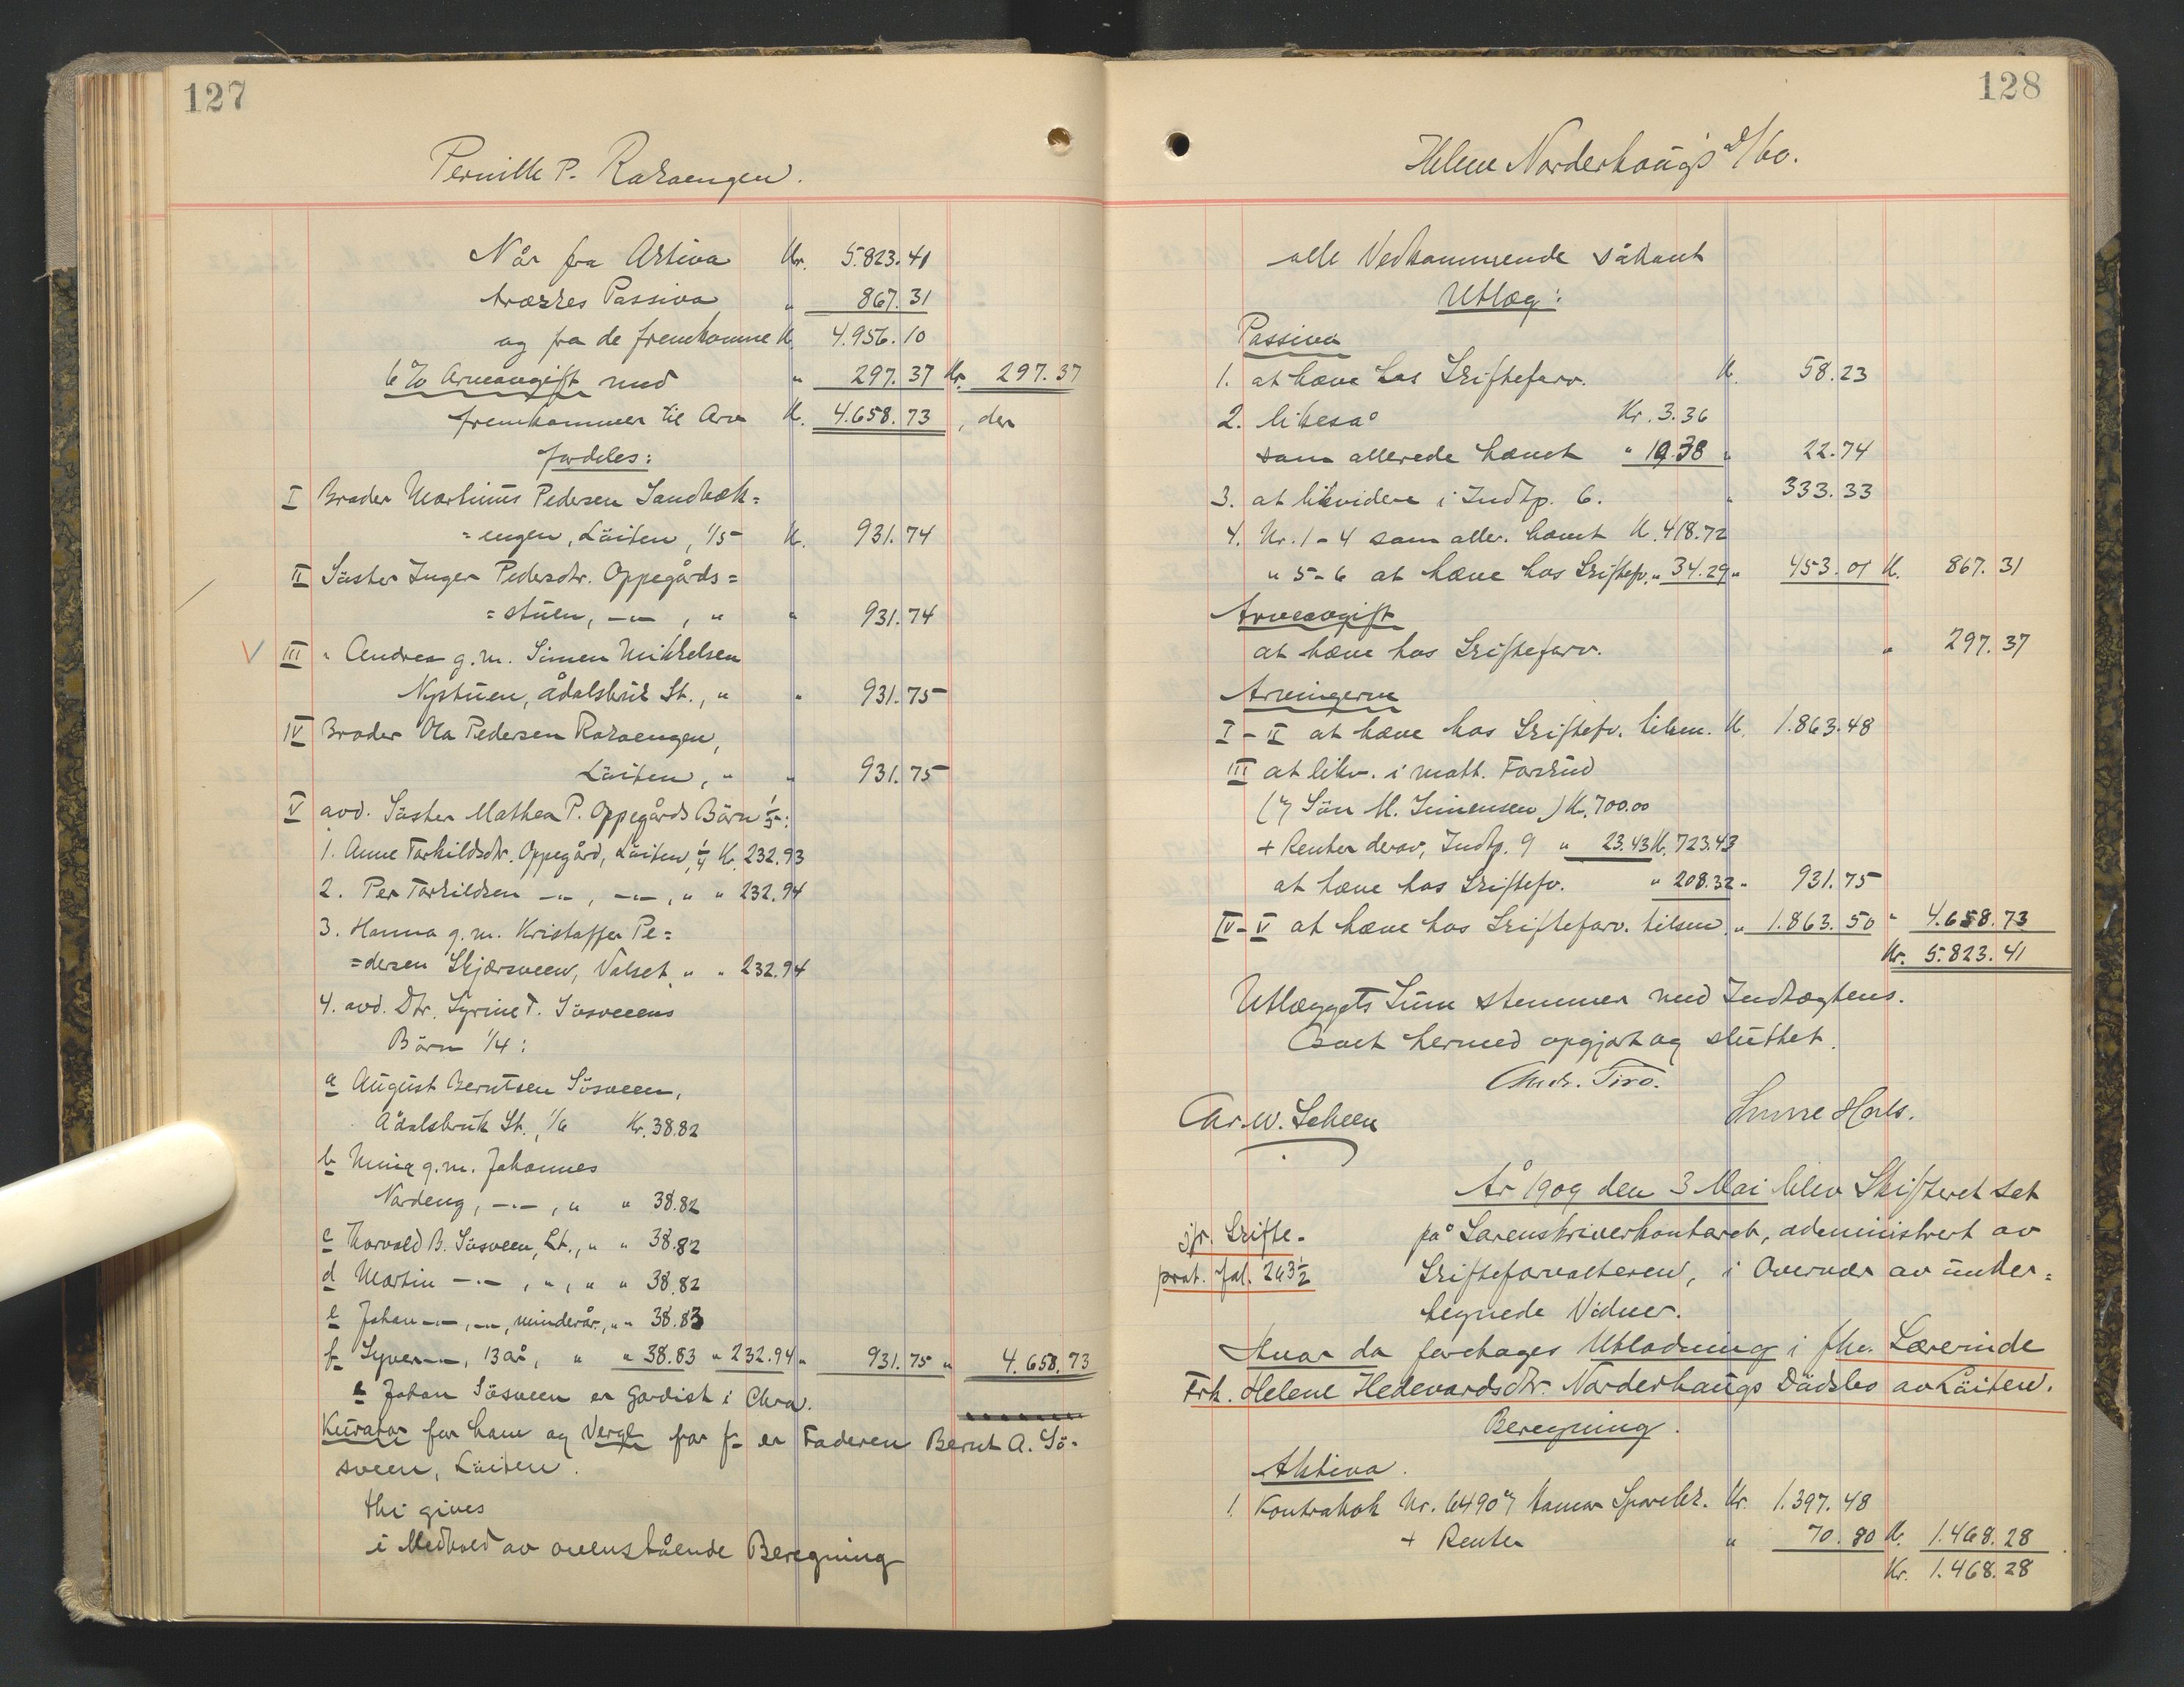 127
Pernille P. Rakaengen.
Når fra Aktiva Kr. 5.823.41
trækkes Passiva " 867.31
og fra de fremkomne K. 4.956.10
6% Arveavgift med " 297.37 Kr. 297.37
fremkommer til Arv K. 4.658.73, der
fordeles:
I Broder Martinus Pedersen Sandbæk=
=engen, Löiten, 1/5 K. 931.74
II Söster Inger Pedersdtr. Oppegårds=
=stuen, -"-, " " 931.74
III " Andrea g.m. Simen Mikkelsen
Nystuen, Ådalsbruk St., " " 931.75
IV Broder Ola Pedersen Rakaengen,
Löiten, " " 931.75
V avd. Söster Mathea P. Oppegårds Börn 1/5:
1. Anne Torkildsdtr. Oppegård, Löiten, 1/4 K. 232.93
2. Per Torkildsen -"-, -"-, " " 232.94
3. Hanna g.m. Kristoffer Pe=
=dersen Skjærsveen, Valset, " " 232.94
4. avd. Dtr. Syrine T. Sösveens
Börn 1/4:
a August Berntsen Sösveen,
Ådalsbruk St., 1/6 Kr. 38.82
b Mina g.m. Johannes
Nordeng, -"-, " " 38.82
c Thorvald B. Sösveen, Lt., " " 38.82
d Martin -"-, ", " " 38.82
e Johan -"-, -"-, mindeår., " " 38.83
f Syver -"-, 13 år, " " 38.83 " 232.94 " 931.75 " 4.658.73
e Johan Sösveen er Gardist i Chra.
Kurator for ham og Verge for f er Faderen Bernt A. Sö-
sveen, Löiten.
thi gives
i Medhold av ovenstående Beregning
128
Helene Norderhaug's d/bo.
alle Vedkommende såkant
Utlæg:
Passiva
1. at hæve hos Skifteforv. K. 58.23
2. likeså Kr. 3.36
som allerede hævet " 19.38 " 22.74
3. at likvidere i Indtp. 6. " 333.33
4. Nr. 1-4 som aller. hævet K. 418.72
" 5-6 at hæve hos Skiftefv. " 34.29 " 453.01 K. 867.31
Arveavgift
at hæve hos Skifteforv. " 297.37
Arvingerne
I-II at hæve hos Skiftefv. tilsm. K. 1.863.48
III at likv. i mott. Forskud
(v/ Sön M. Simensen) K. 700.00
+ Renter derav, Indtp. 9 " 23.43 K. 723.43
at hæve hos Skiftefv. " 208.32 " 931.75
IV-V at hæve hos Skifteforv. tilsm. " 1.863.50 " 4.658.73
Kr. 5.823.41
Utlæggets Sum stemmer med Indtægtens.
Boet hermed opgjort og sluttet.
Chr. W. Scheen
År 1909 den 3 Mai blev Skifteret sat
på Sorenskriverkontoret, administrert av
Skifteforvalteren, i Overvær av under=
tegnede Vidner.
jfr. Skifte-
prot. fol. 263 1/2
Hvor da foretages Utlodning i fhv. Lærerinde
Frk. Helene Hedevardsdtr. Norderhaugs Dödsbo av Löiten.
Beregning.
Aktiva.
1. Kontrabok Nr. 6490 v/ Hamar Sparebk. Kr. 1.397.48
+ Renter " 70.80 K. 1.468.28
Kr. 1.468.28